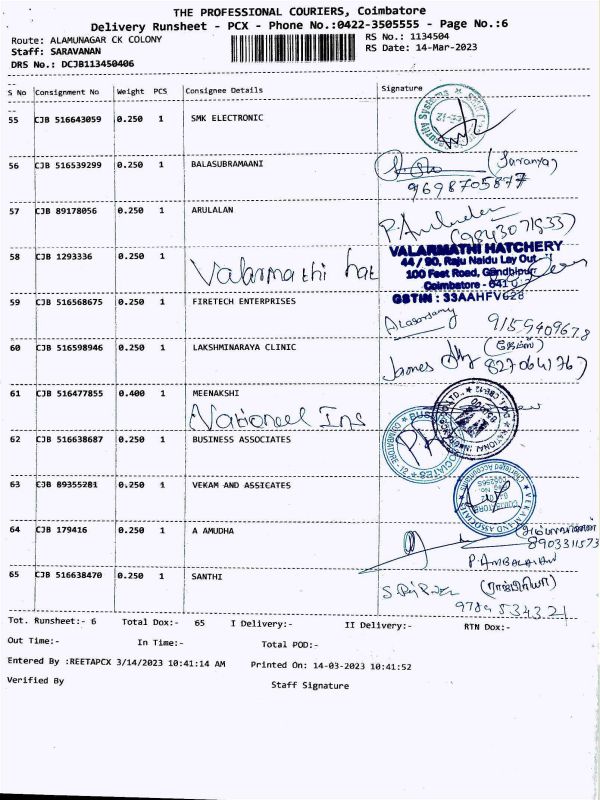 THE PROFESSIONAL COURIERS, Coimbatore
Delivery Runsheet - PCX - Phone No.:0422-3505555 - Page No.:6
Route: ALAMUNAGAR CK COLONY RS No.: 1134504
Staff: SARAVANAN RS Date: 14-Mar-2023
DRS No.: DCJB113450406
S No Consignment No Weight PCS Consignee Details Signature
55 CJB 516643059 0.250 1 SMK ELECTRONIC
56 CJB 516539299 0.250 1 BALASUBRAMAANI (Saranya)
9698705877
57 CJB 89178056 0.250 1 ARULALAN P.Arulalan
(9843071533)
58 CJB 1293336 0.250 1 Valarmathi hat
VALARMATHI HATCHERY
44 / 90, Raju Naidu Lay Out
100 Feet Road, Gandhipur
Coimbatore - 641 0
GSTIN : 33AAHFV628
59 CJB 516568675 0.250 1 FIRETECH ENTERPRISES 9159409678
60 CJB 516598946 0.250 1 LAKSHMINARAYA CLINIC James
8270641767
61 CJB 516477855 0.400 1 MEENAKSHI
National Ins
62 CJB 516638687 0.250 1 BUSINESS ASSOCIATES
63 CJB 89355281 0.250 1 VEKAM AND ASSICATES
64 CJB 179416 0.250 1 A AMUDHA 8903311573
65 CJB 516638470 0.250 1 SANTHI
9789534321
Tot. Runsheet:- 6 Total Dox:- 65 I Delivery:- II Delivery:- RTN Dox:-
Out Time:- In Time:- Total POD:-
Entered By :REETAPCX 3/14/2023 10:41:14 AM Printed On: 14-03-2023 10:41:52
Verified By Staff Signature